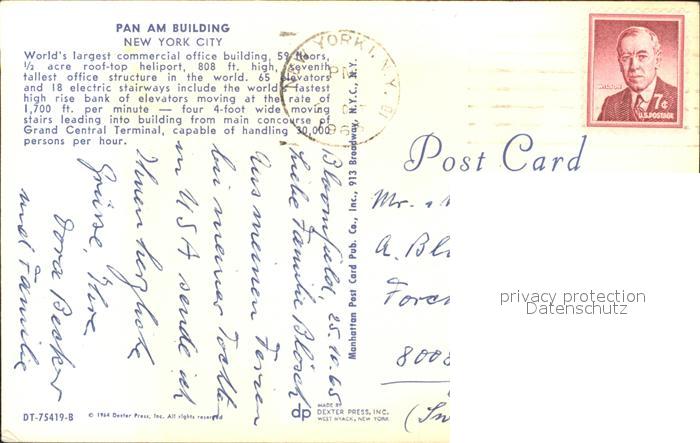 PAN AM BUILDING
NEW YORK CITY
World's largest commercial office building, 59 floors,
½ acre roof-top heliport, 808 ft. high, seventh
tallest office structure in the world. 65 elevators
and 18 electric stairways include the world's fastest
high rise bank of elevators moving at the rate of
1,700 ft. per minute — four 4-foot wide moving
stairs leading into building from main concourse of
Grand Central Terminal, capable of handling 30,000
persons per hour.
Bloomfield, 25.10.65
Liebe Familie Blösch
Aus meinen Ferien
bei meiner Tochter
in USA sende ich
Ihnen herzliche
Grüsse, Ihre
Dora Becker
und Familie
DT-75419-B
© 1964 Dexter Press, Inc. All rights reserved
dp
MADE BY
DEXTER PRESS, INC.
WEST NYACK, NEW YORK
Manhattan Post Card Pub. Co., Inc., 913 Broadway, N.Y.C., N.Y.
NEW YORK 1, N.Y.
PM
Post Card
WILSON
7¢
U.S. POSTAGE
Mr.
A. Bl
8008
privacy protection
Datenschutz